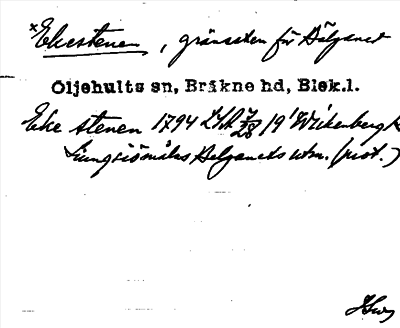 ×Ekestenen, gränssten för Bälganet
Öljehults sn, Bräkne hd, Blek.l.
Eke stenen 1794 LSA 7/28 19' Wickenberg &
Ljungsiömålas Belganets utm. (prot.)